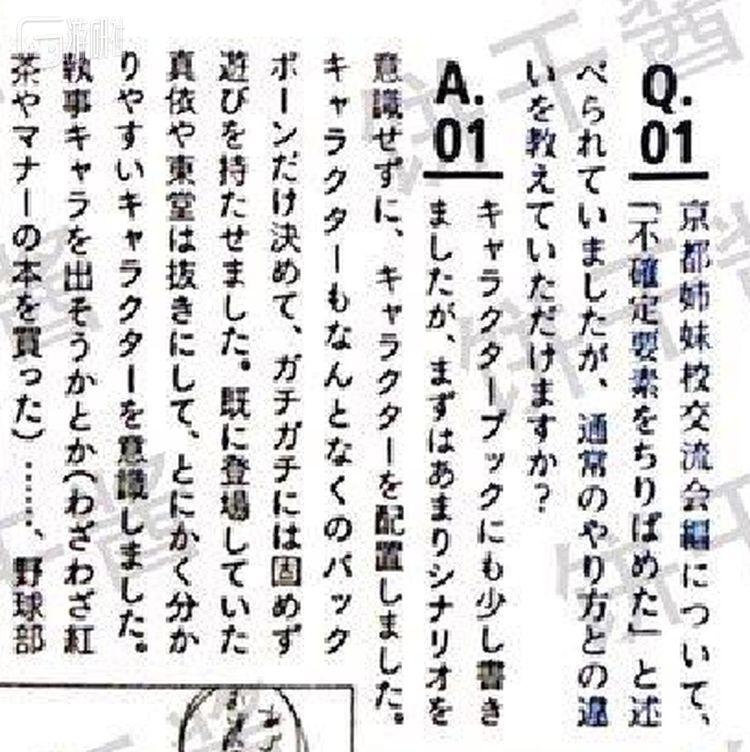 Q.01
京都姉妹校交流会編について、
「不確定要素をちりばめた」と述
べられていましたが、通常のやり方との違
いを教えていただけますか？
A.01
キャラクターブックにも少し書き
ましたが、まずはあまりシナリオを
意識せずに、キャラクターを配置しました。
キャラクターもなんとなくのバック
ボーンだけ決めて、ガチガチには固めず
遊びを持たせました。既に登場していた
真依や東堂は抜きにして、とにかく分か
りやすいキャラクターを意識しました。
執事キャラを出そうかとか（わざわざ紅
茶やマナーの本を買った）……、野球部
饼干酱